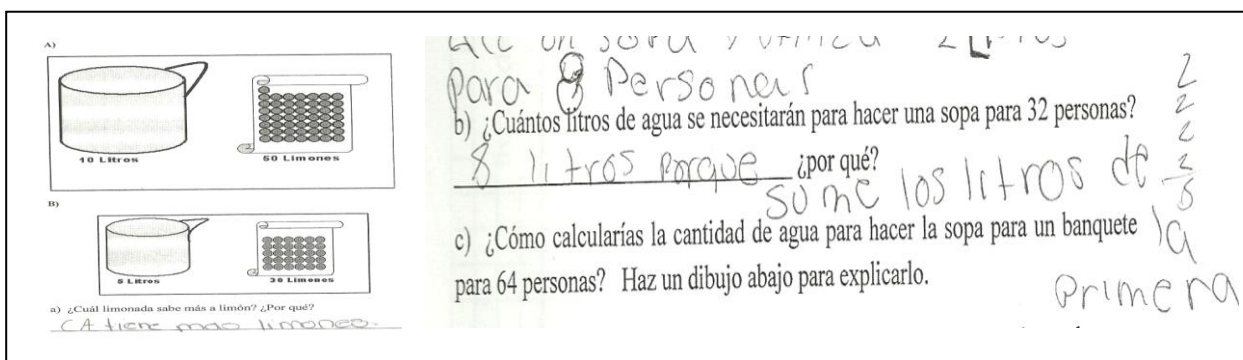 A)
10 Litros
50 Limones
B)
5 Litros
30 Limones
a) ¿Cuál limonada sabe más a limón? ¿Por qué?
CA tiene mas limones.
para 8 Personas
b) ¿Cuántos litros de agua se necesitarán para hacer una sopa para 32 personas?
8 litros Porque ¿por qué?
sume los litros de
la
Primera
2
2
2
2
8
c) ¿Cómo calcularías la cantidad de agua para hacer la sopa para un banquete
para 64 personas? Haz un dibujo abajo para explicarlo.